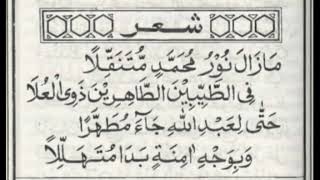 شعر
مَازَالَ نُوْرُ مُحَمَّدٍ مُّتَنَقِّلًا
فِى الطَّيِّبِيْنَ الطَّاهِرِيْنَ ذَوِى الْعُلَا
حَتّٰى لِعَبْدِ اللهِ جَآءَ مُطَهَّرًا
وَبِوَجْهِ اٰمِنَةٍ بَدَا مُتَهَلِّلًا